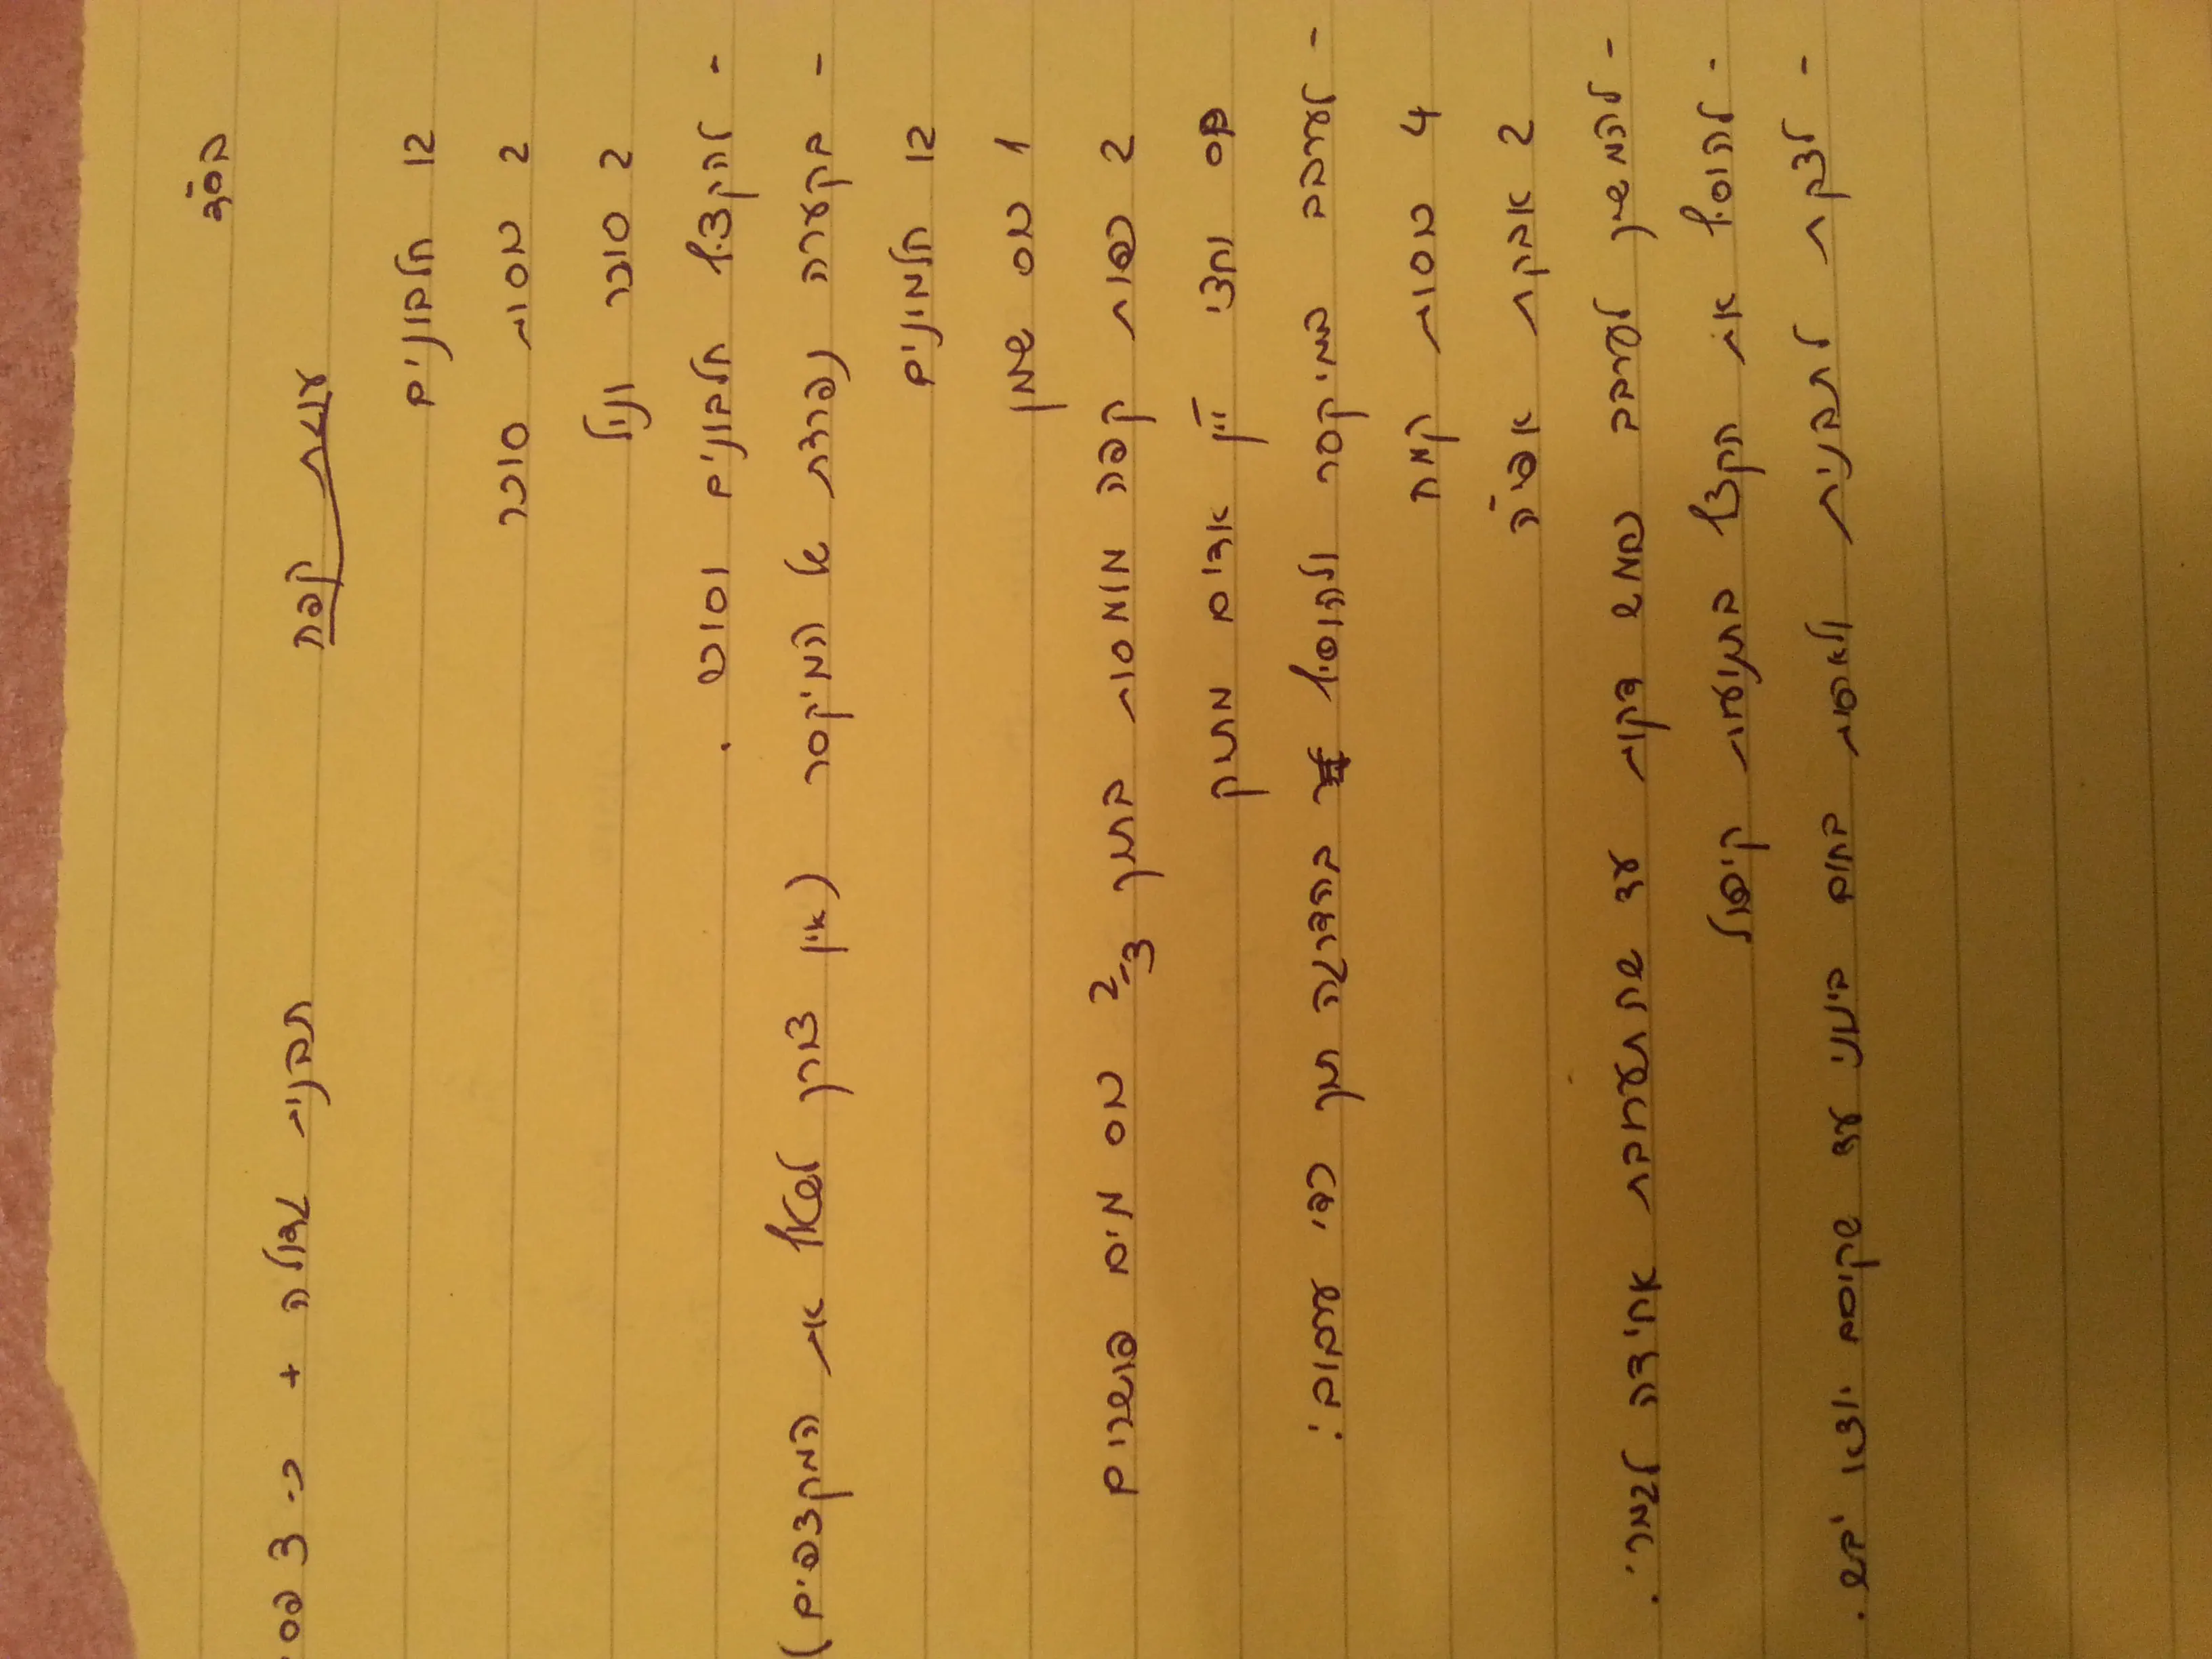 בס"ד
עוגת קפה תבנית עגולה + כ- 3 פס'
12 חלבונים
2 כוסות סוכר
2 סוכר וניל
- להקציף חלבונים וסוכר.
- בקערה נפרדת של המיקסר (אין צורך לשטוף את המקצפים)
12 חלמונים
1 כוס שמן
2 כפות קפה מומסות בתוך 2-3 כוס מים פושרים
כוס וחצי יין אדום מתוק
- לערבב במיקסר ולהוסיף בהדרגה תוך כדי ערבוב:
4 כוסות קמח
2 אבקת אפיה
- להמשיך לערבב כמה דקות עד שהתערובת אחידה לגמרי.
- להוסיף את הקצף בתנועות קיפול
- לצקת לתבנית ולאפות בחום בינוני עד שקיסם יוצא יבש.